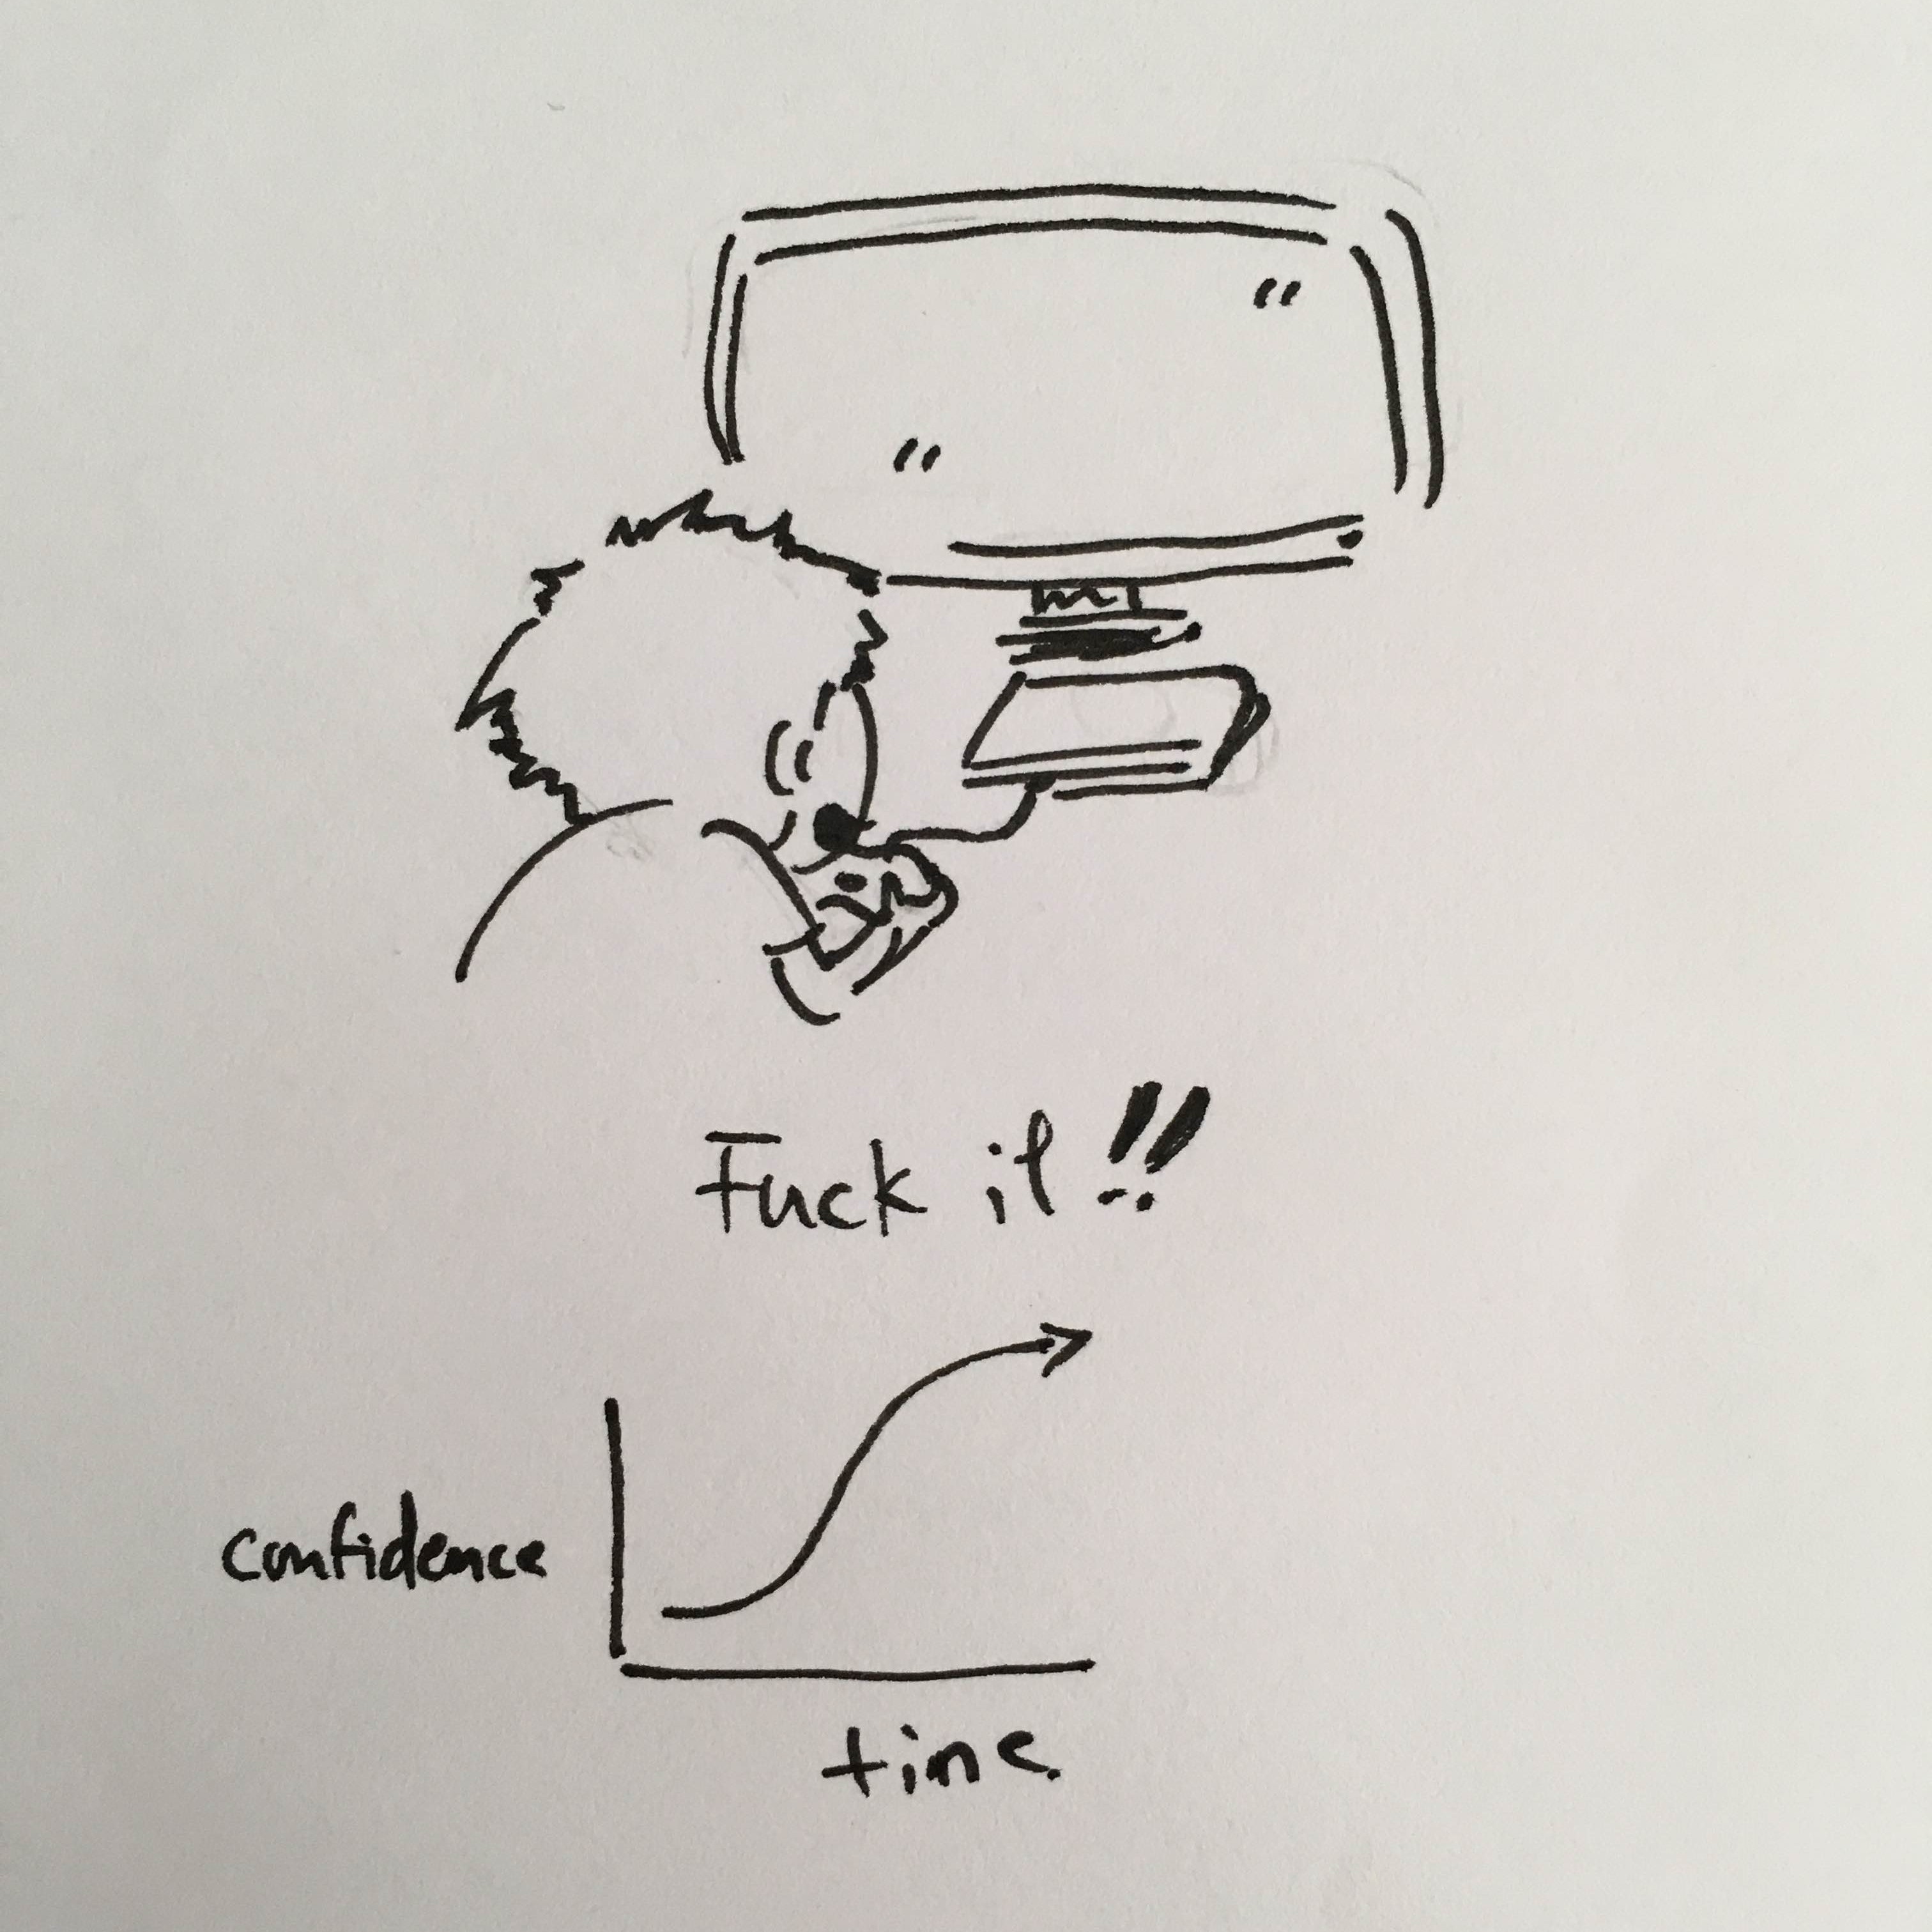 Fuck it!!
confidence
time